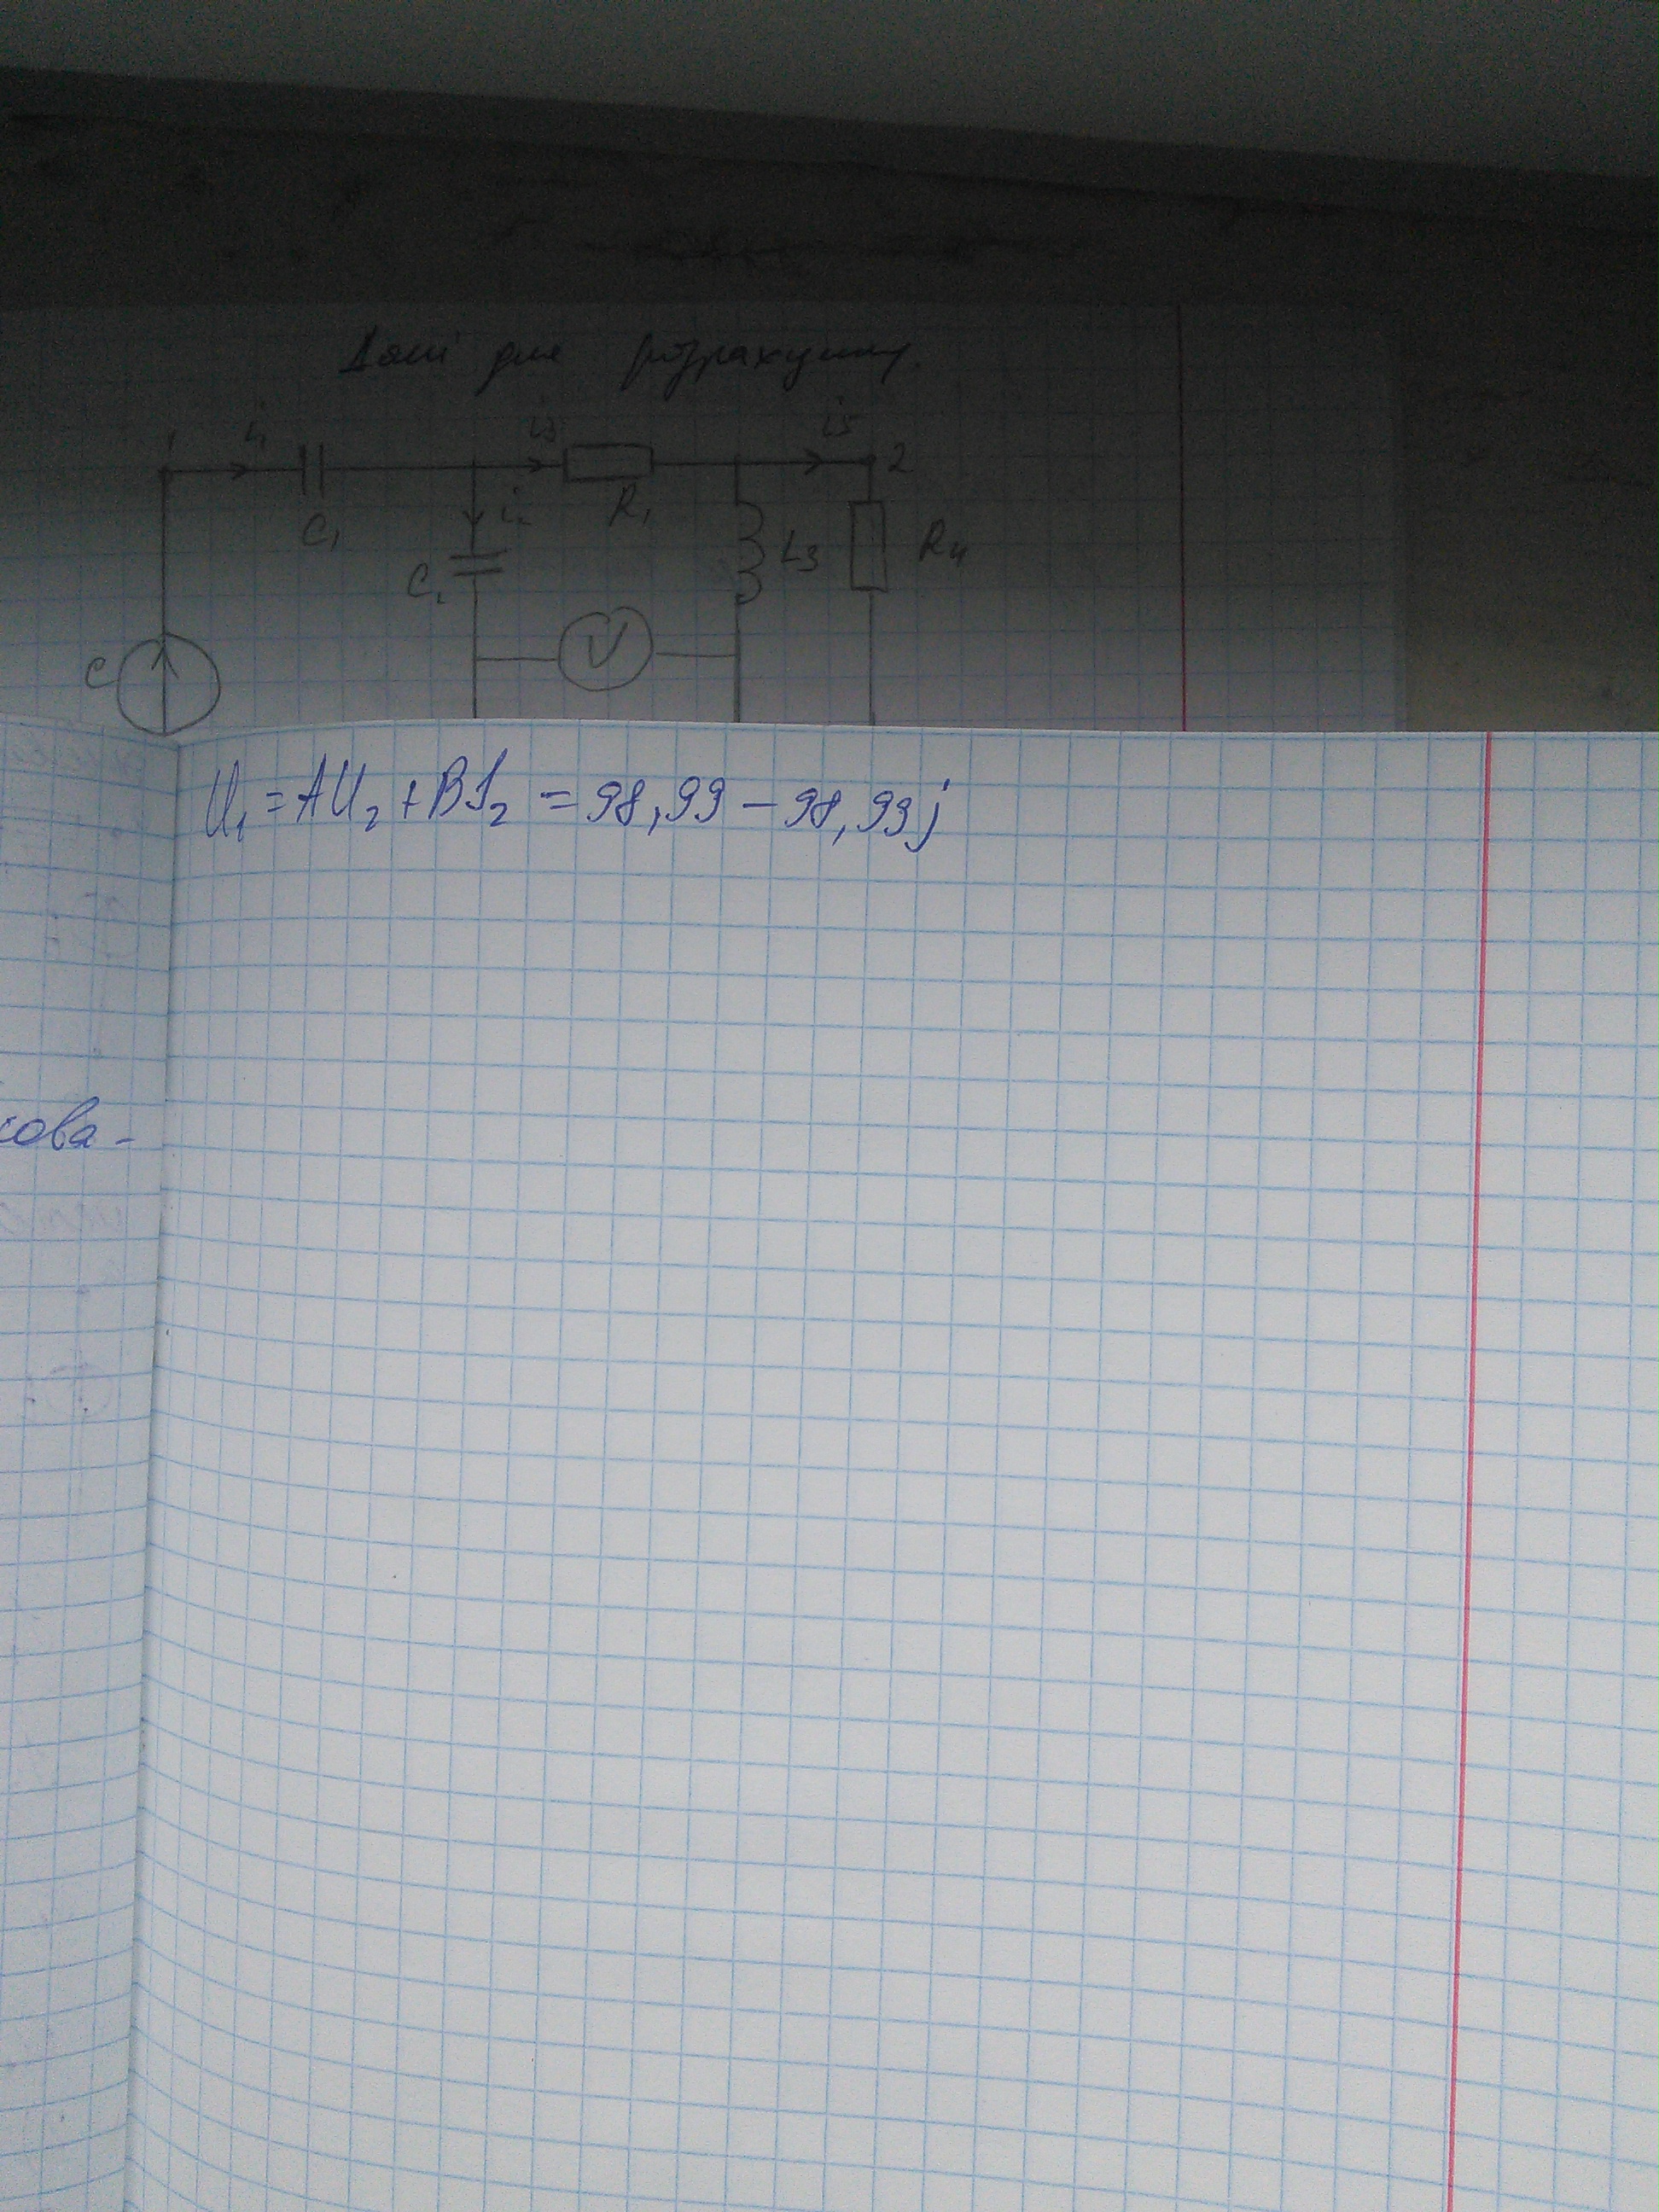 Дані для розрахунку.
1 i₁ i₃ i₅ 2
C₁ i₂ R₁
C₂ L3 Rн
e V
U₁ = AU₂ + BI₂ = 98,99 – 98,99j
кова-